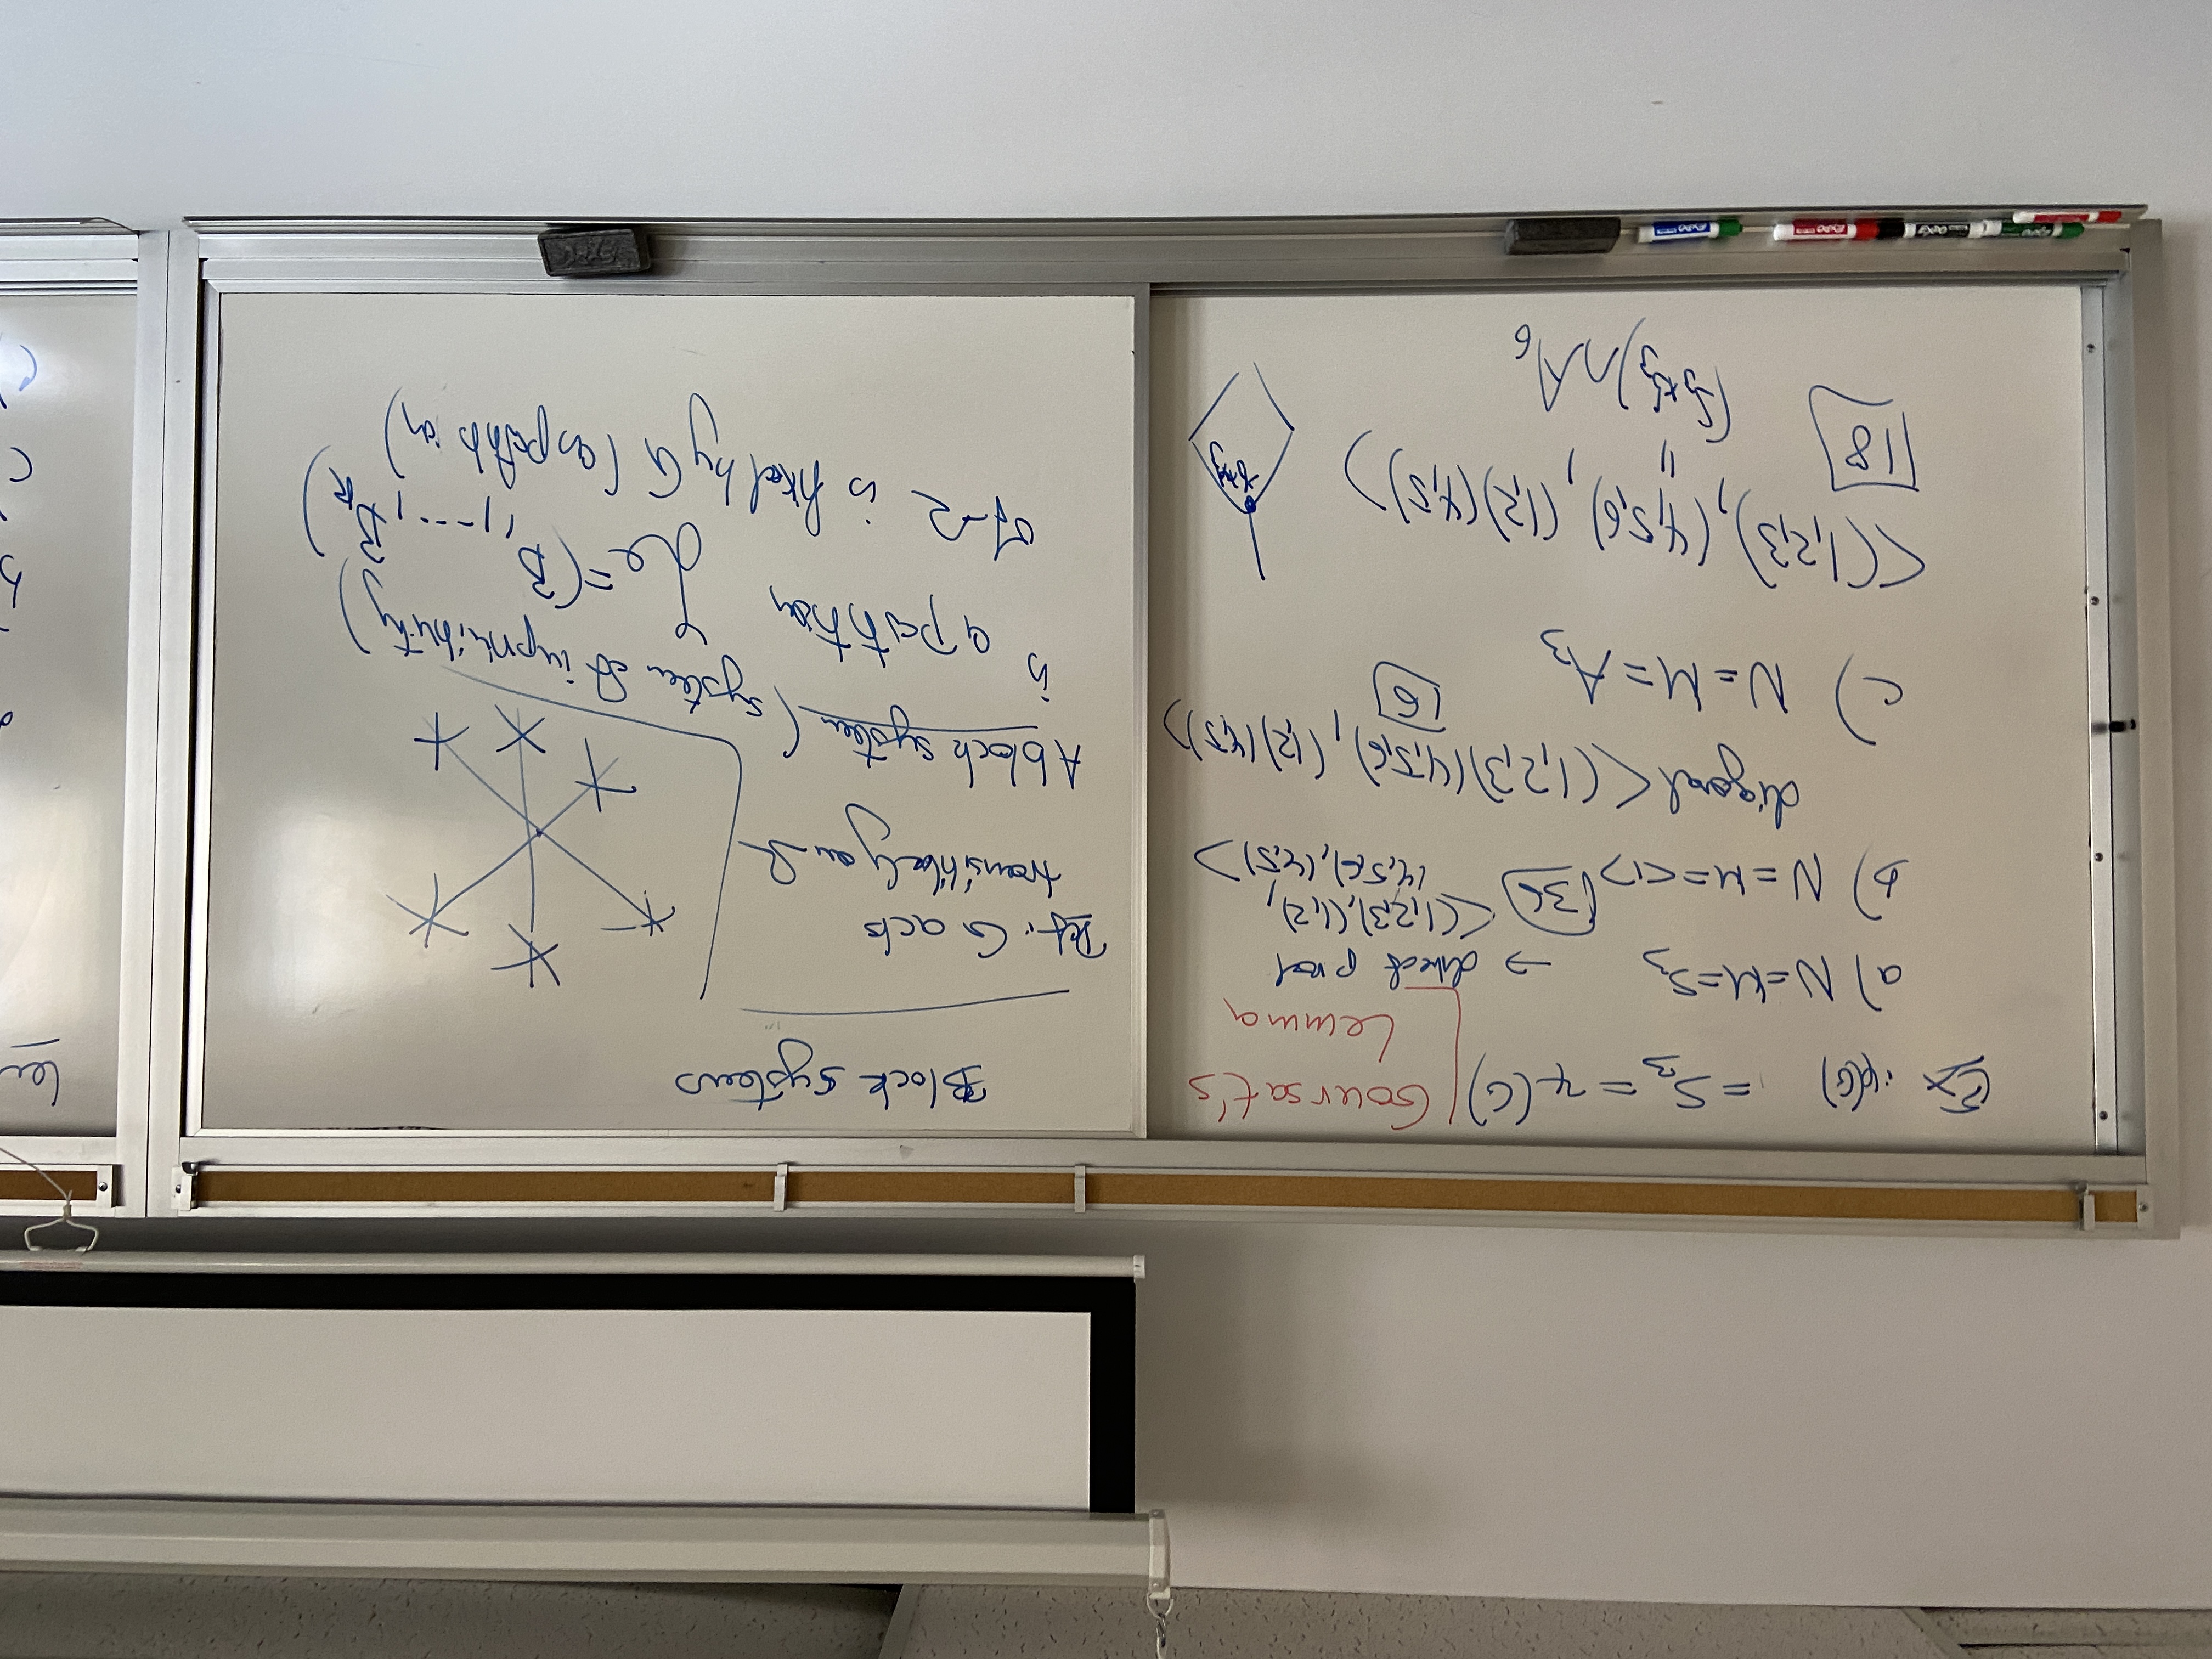 Ex: φ(G) = S₃ = ψ(G)
Goursat's
Lemma
a) N=M=S₃
→ direct prod
<(1,2,3),(1,2),
(4,5,6),(4,5)>
36
b) N=M=<1>
diagonal <(1,2,3)(4,5,6), (1,2)(4,5)>
6
c) N=M=A₃
<(1,2,3), (4,5,6), (1,2)(4,5)>
18
"
(S₃×S₃)∩A₆
S₃×S₃
Block systems
Def: G acts
transitively on Ω
A block system (system of imprimitivity)
is a partition
of Ω is fixed by G (as partition)